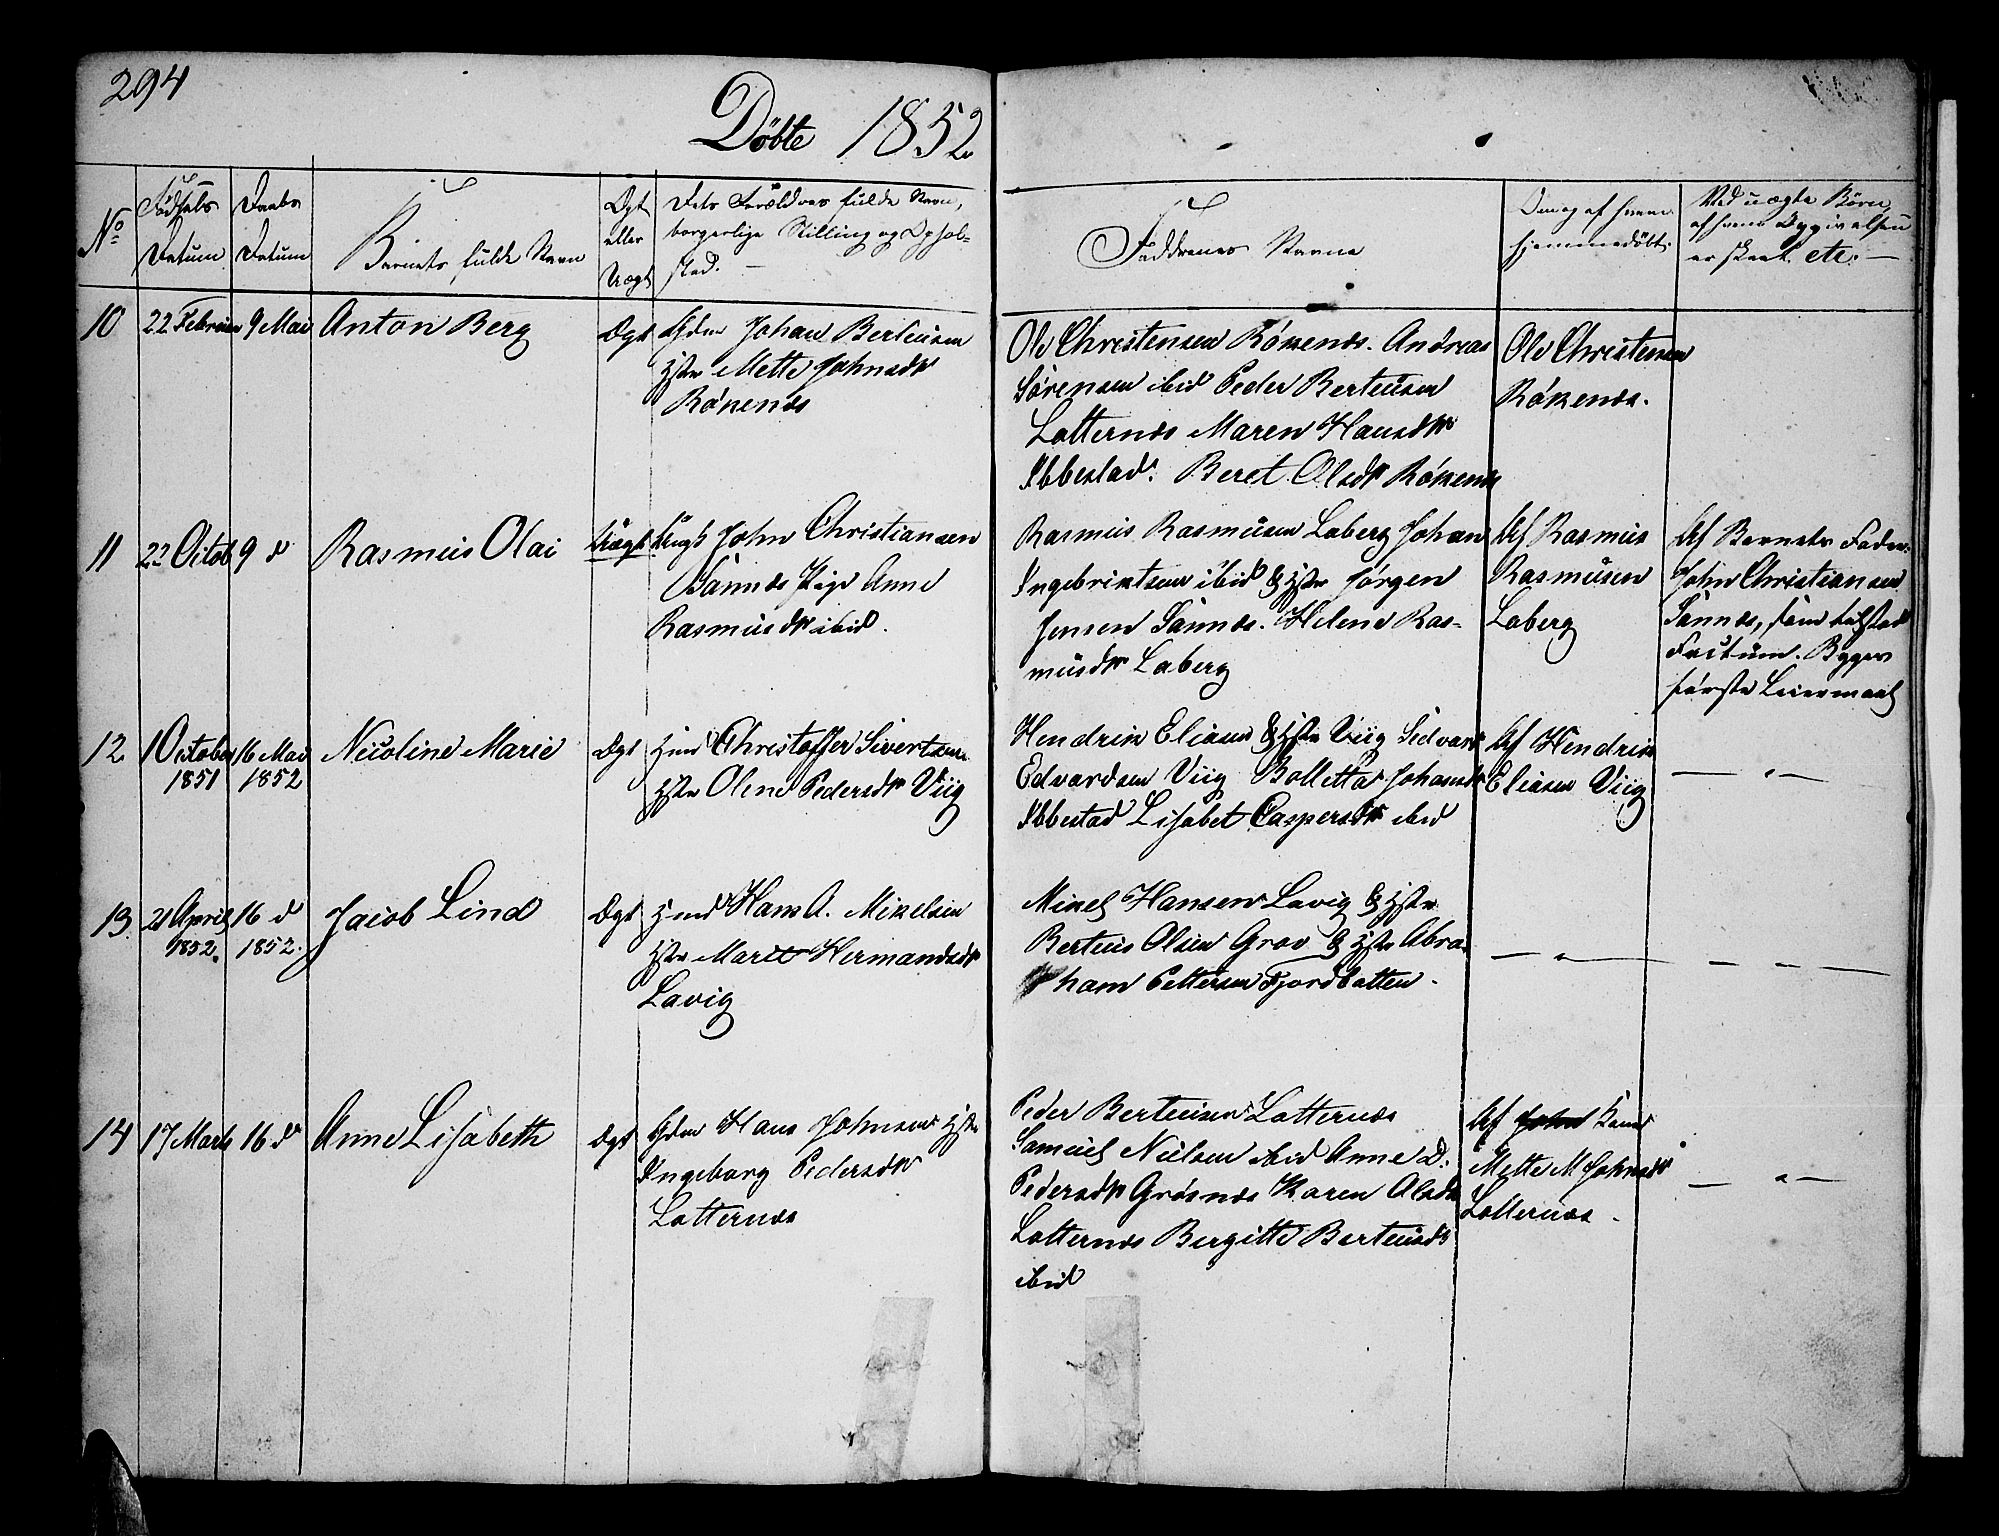 294
Döbte 1852
No
Födsels
Datum
Daabs
Datum
Barnets fulde Navn
Ægt
eller
Uægt
Dets Forældres fulde Navn,
borgerlige Stilling og Ophol-
sted.
Faddrenes Navne
Om og af hvem
hjemmedöbt.
Ved uægte Börn
af hvem Opgivelsen
er skeet etc.
10
22 Februar
9 Mai
Anton Berg
Ægt
Gdm Johan Berteusen
Hstr Mette Johnsdtr
Rökenæs
Ole Christensen Rökenæs. Andreas
Sörensen ibid Peder Berteusen
Latternæs Maren Hansdtr
Ibbestad. Beret Olsdtr Rökenæs
Ole Christensen
Rökenæs.
11
22 Octob
9 d
Rasmus Olai
Uægt
Ungk John Christiansen
Sannæs Pige Anne
Rasmusdtr ibid.
Rasmus Rasmusen Laberg Johan
Ingebrigtsen ibid & Hstr Jörgen
Jensen Sannæs. Helene Ras-
musdtr Laberg
Af Rasmus
Rasmusen
Laberg
Af Barnets Fader
John Christiansen
Sannæs, som tilstod
Factum. Begges
förste Leiermaal
12
1 October
1851
16 Mai
1852
Nicoline Marie
Ægt
Hmd Christoffer Sivertsen
Hstr Olene Pedersdtr Viig
Hendrik Eliasen & Hstr Viig Sedvard
Edvardsen Viig Bolletta Johansdtr
Ibbestad Lisabet Caspersdtr ibid
Af Hendrik
Eliasen Viig
13.
21 April
1852.
16 d
1852.
Jacob Lind
Ægt
Hmd Hans A. Mikelsen
Hstr Marit Hermandsdtr
Lavig
Mikel Hansen Lavig & Hstr
Berteus Olsen Grov & Hstr Abra-
ham Pettersen Fjordbotten.
14
17 Marts
16 d
Anne Lisabeth
Ægt
Gdm Hans Johnsen Hstr
Ingeborg Pedersdtr
Latternæs
Peder Berteusen Latternæs
Samuel Nielsen ibid Anne D.
Pedersdtr Grösnæs Karen Olsdtr
Latternæs Bergitte Berteusdtr
ibid
Af John Kone
Mette M Johnsdtr
Latternæs.